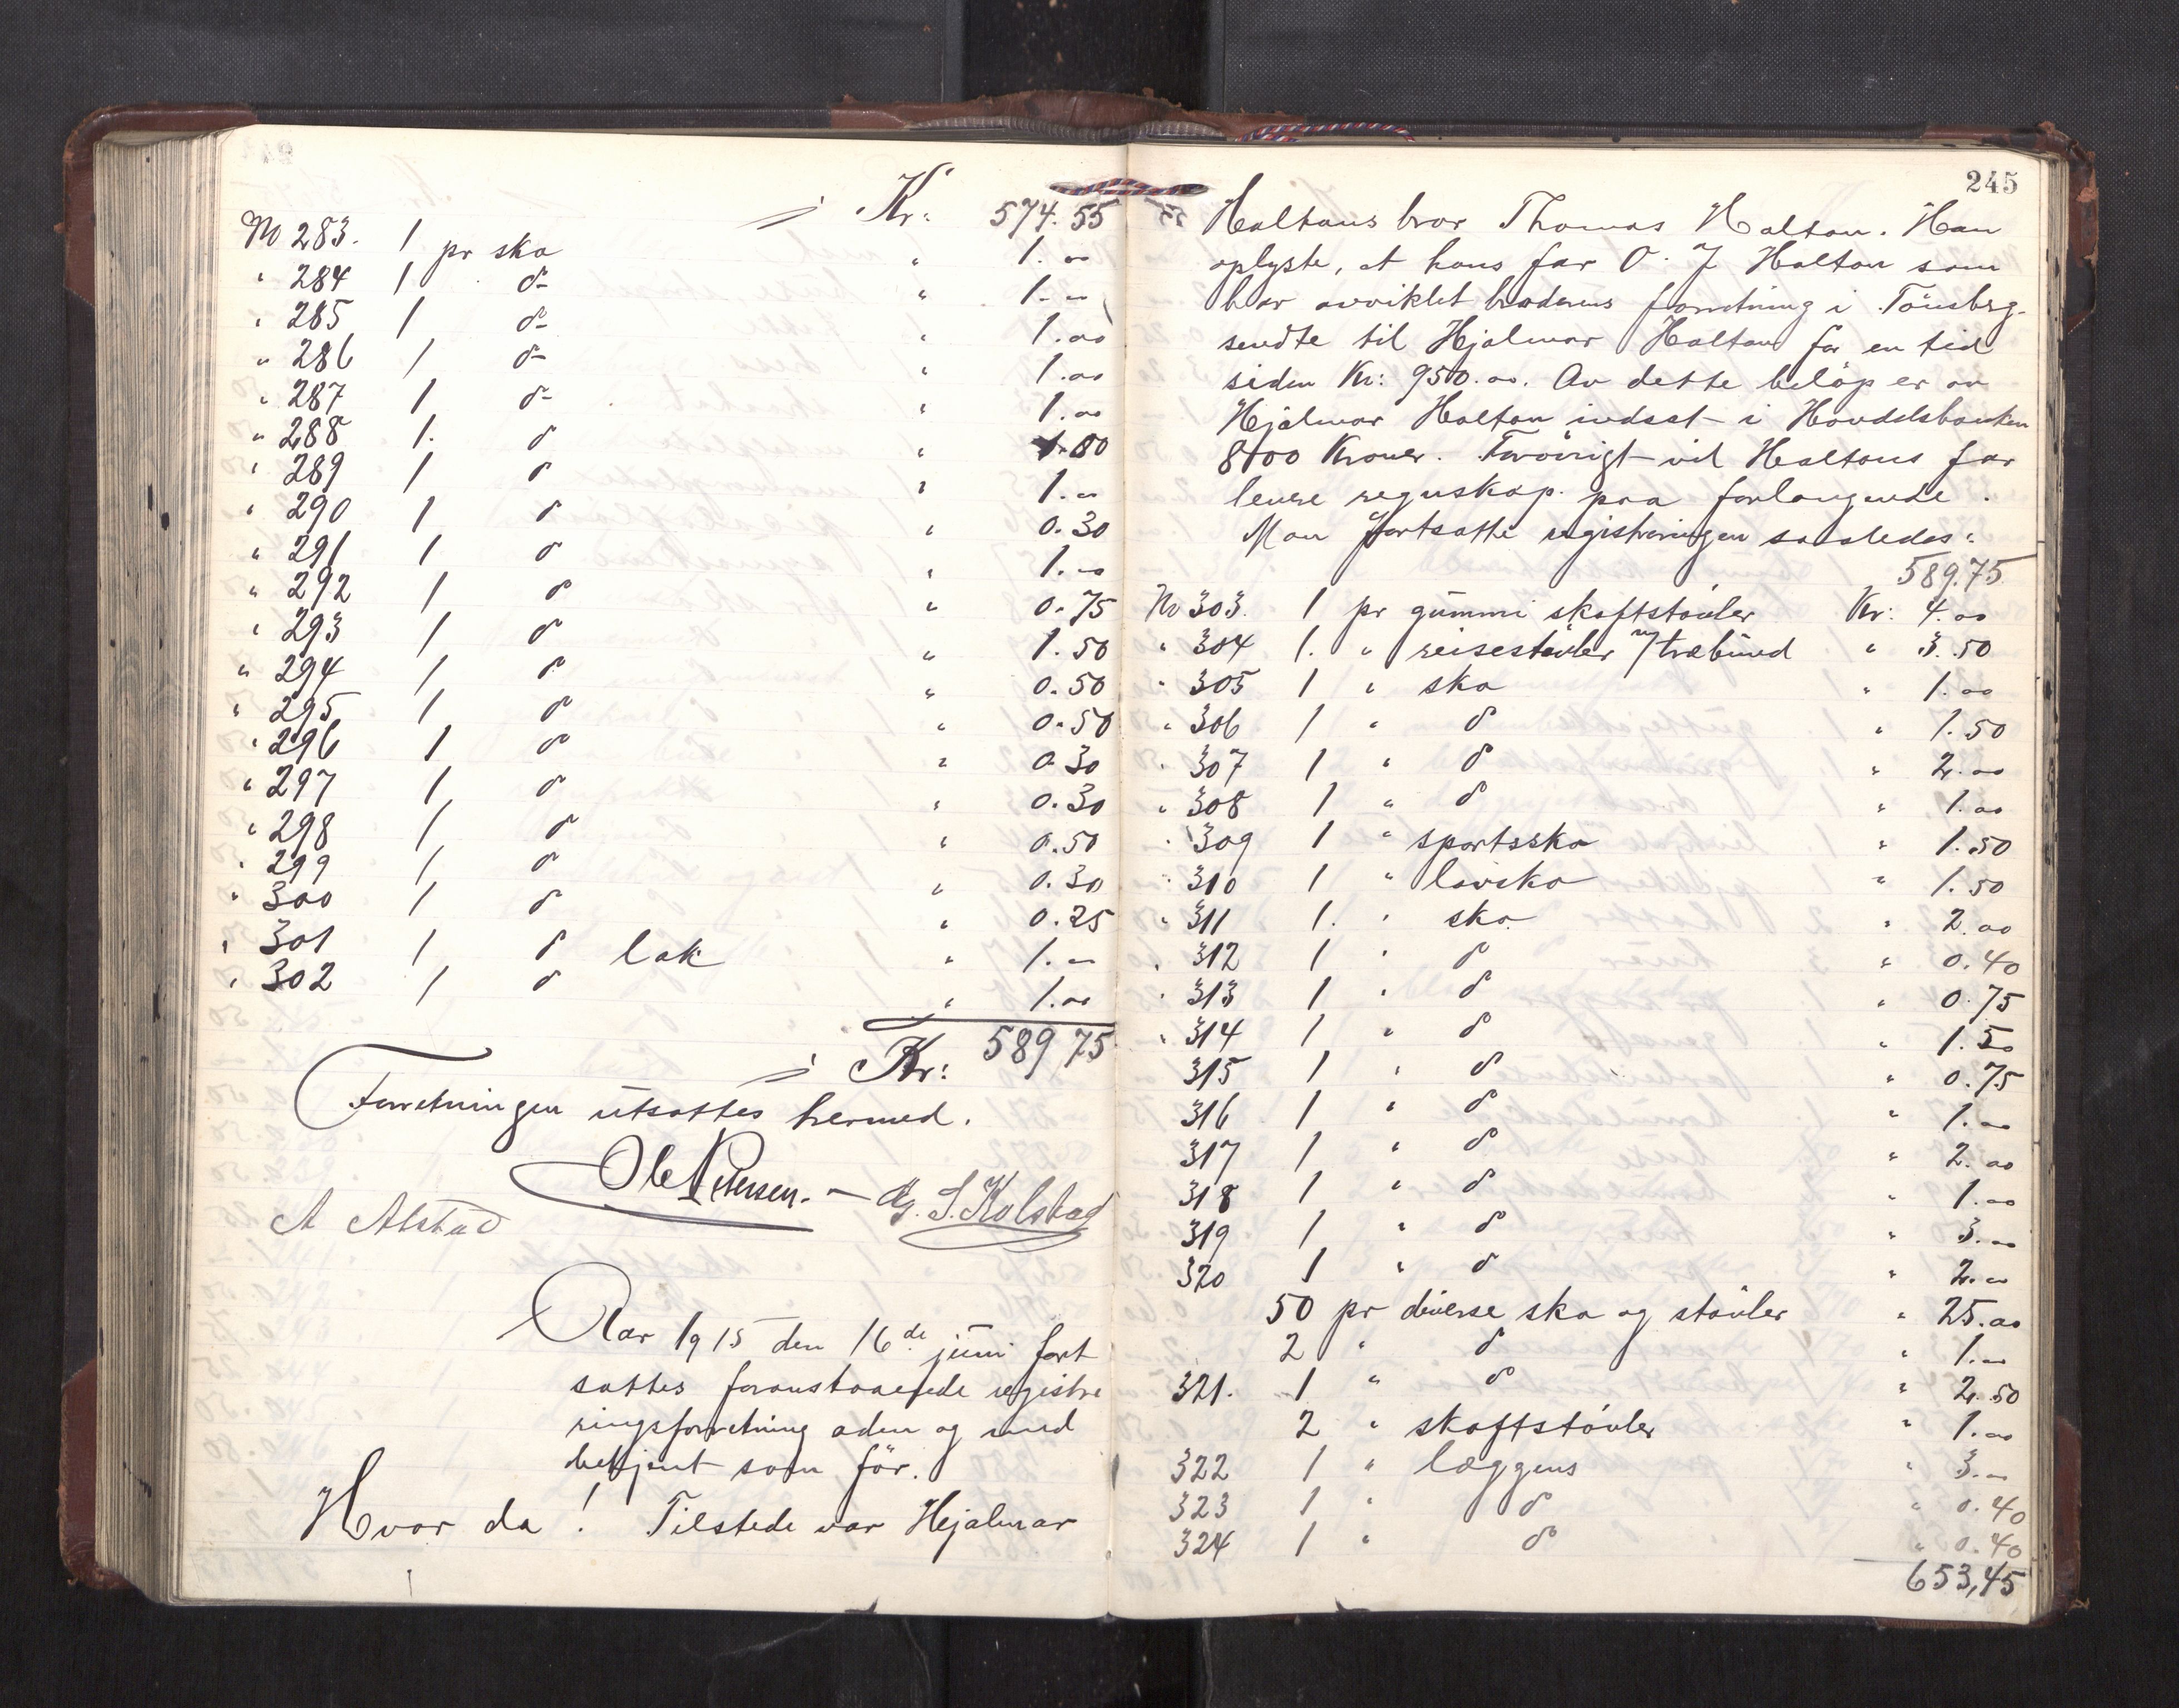 Kr: 574.55
No 283. 1 pr sko " 1.00
" 284 1 do " 1.00
" 285 1 do " 1.00
" 286 1 do " 1.00
" 287 1 do " 1.00
" 288 1. do " 1.80
" 289 1 do " 1.00
" 290 1 do " 0.30
" 291 1 do " 1.00
" 292 1 do " 0.75
" 293 1 do " 1.50
" 294 1 do " 0.50
" 295 1 do " 0.50
" 296 1 do " 0.30
" 297 1 do " 0.30
" 298 1 do " 0.50
" 299 1 do " 0.30
" 300 1 do " 0.25
" 301 1 do lak " 1.00
" 302 1 do " 1.00
Kr: 589 75
Forretningen utsattes hermed.
Ole Petersen. – S. Kolstad
A Alstad
Aar 1915 den 16de juni fort
sattes foranstaaende registre
ringsforretning aden og med
betjent som før.
Hvor da! Tilstede var Hjalmar
245
Holtans bror Thomas Holtan. Han
oplyste, at hans far O. J Holtan som
har avviklet broderens forretning i Tönsberg
sendte til Hjalmar Holtan for en tid
siden Kr: 950.00. Av dette beløp er av
Hjalmar Holtan indsat i Handelsbanken
800 Kroner. Forövrigt vil Holtans far
levere regnskap paa forlangende.
Man fortsatte registreringen saaledes:
589.75
No 303. 1 pr gummi skaftstövler Kr: 4.00
" 304 1. " reisestövler m/træbund " 3.50
" 305 1 " sko " 1.00
" 306 1 " do " 1.50
" 307 1 " do " 2.00
" 308 1 " do " 1.00
" 309 1 " sportssko " 1.50
" 310 1 " lavsko " 1.50
" 311 1. " sko " 2.00
" 312 1 " do " 0.40
" 313 1 " do " 0.75
" 314 1 " do " 1.50
315 1 " do " 0.75
316 1 " do " 1.00
317 1 " do " 2.00
318 1 " do " 1.00
319 1 " do " 3.00
320 1 " do " 2.00
50 pr diverse sko og stövler " 25.00
2 " do " 1.00
321. 1 " do " 2.50
2 " skaftstövler " 1.00
322 1 " læggens " 3.00
323 1 " do " 0.40
324 1 " do " 0.40
653,45